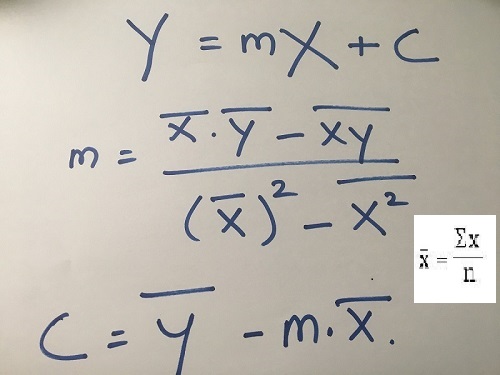 Y = mX + C
m = (x̅ · y̅ − x̅y̅) / ((x̅)² − x̅²̅)
x̄ = Σx / n
C = y̅ − m · x̅.